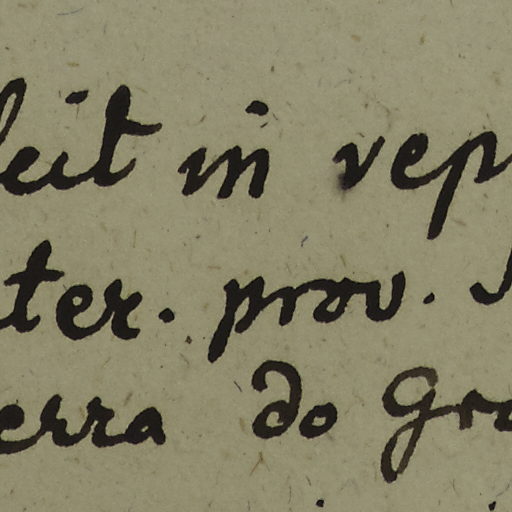 leit in vep
ter. prov. S
erra do Gra